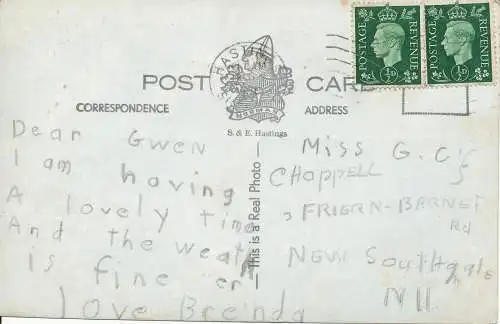 POSTAGE REVENUE
POSTAGE REVENUE
½D
½D
HASTINGS
POST CARD
CORRESPONDENCE
ADDRESS
NORMAN
S. & E. Hastings
This is a Real Photo
Dear Gwen
I am having
A lovely time
And the weath
is fine er
love Brenda
Miss G. C
CHAPPELL
FRIERN-BARNET
Rd
NEW Southgate
N11